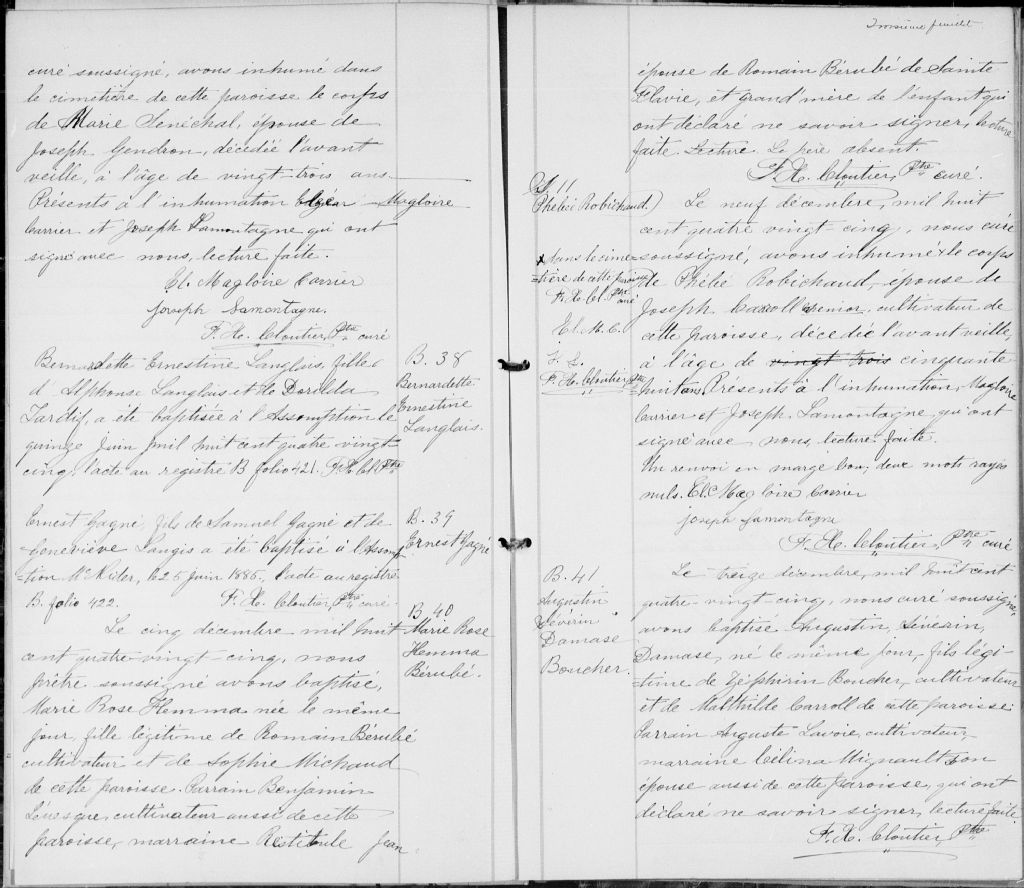 curé soussigné, avons inhumé dans
le cimetière de cette paroisse le corps
de Marie Senéchal, épouse de
Joseph Gendron, décédée l'avant
veille, à l'âge de vingt-trois ans
Présents à l'inhumation Magloire
Carrier et Joseph Lamontagne qui ont
signé avec nous, lecture faite.
El. Magloire Carrier
Joseph Lamontagne.
F. X. Cloutier, Ptre curé
Bernardette Ernestine Langlais, fille
d'Alphonse Langlais et de Dorilda
Tardif, a été baptisée à l'Assomption le
quinze Juin mil huit cent quatre vingt
cinq, l'acte au registre B folio 421. F. X. Cl. Ptre
B. 38
Bernardette
Ernestine
Langlais.
Ernest Gagné, fils de Samuel Gagné et de
Geneviève Langis a été baptisé à l'Assomp
=tion McNider, le 25 Juin 1885, l'acte au registre
B. folio 422. F. X. Cloutier, Ptre curé.
B. 39
Ernest Gagné
Le cinq décembre mil huit
cent quatre-vingt-cinq, nous
prêtre soussigné avons baptisé,
Marie Rose Hemma née le même
jour, fille légitime de Romain Bérubé
cultivateur et de Sophie Michaud
de cette paroisse. Parrain Benjamin
Lévesque, cultivateur aussi de cette
paroisse, marraine Restitule Jean
B. 40
Marie Rose
Hemma
Bérubé.
Troisième feuillet
épouse de Romain Bérubé de Sainte
Flavie, et grand'mère de l'enfant qui
ont déclaré ne savoir signer, lecture
faite. Lecture. Le père absent.
F. X. Cloutier, Ptre curé.
S. 11
Phébée Robichaud.)
x dans le cime
=tière de cette paroisse
F. X. Cl. Ptre curé
El. M. C.
J. L.
F. X. Cloutier Ptre
Le neuf décembre, mil huit
cent quatre vingt-cinq, nous curé
soussigné, avons inhumé x le corps
de Phébé Robichaud, épouse de
Joseph Carroll senior, cultivateur de
cette paroisse, décédée l'avant veille,
à l'âge de vingt trois cinquante
huit ans. Présents à l'inhumation, Magloire
Carrier et Joseph Lamontagne qui ont
signé avec nous, lecture faite.
Un renvoi en marge bon, deux mots rayés
nuls. El. Magloire Carrier
Joseph Lamontagne
F. X. Cloutier, Ptre curé
B. 41
Augustin
Sévérin
Damase
Boucher.
Le treize décembre, mil huit cent
quatre-vingt-cinq, nous curé soussigné,
avons baptisé Augustin, Sévérin,
Damase, né le même jour, fils légi-
=time de Zéphirin Boucher, cultivateur
et de Malthilde Carroll de cette paroisse.
Parrain Auguste Lavoie, cultivateur,
marraine Célina Mignault son
épouse aussi de cette paroisse, qui ont
déclaré ne savoir signer, lecture faite.
F. X. Cloutier, Ptre